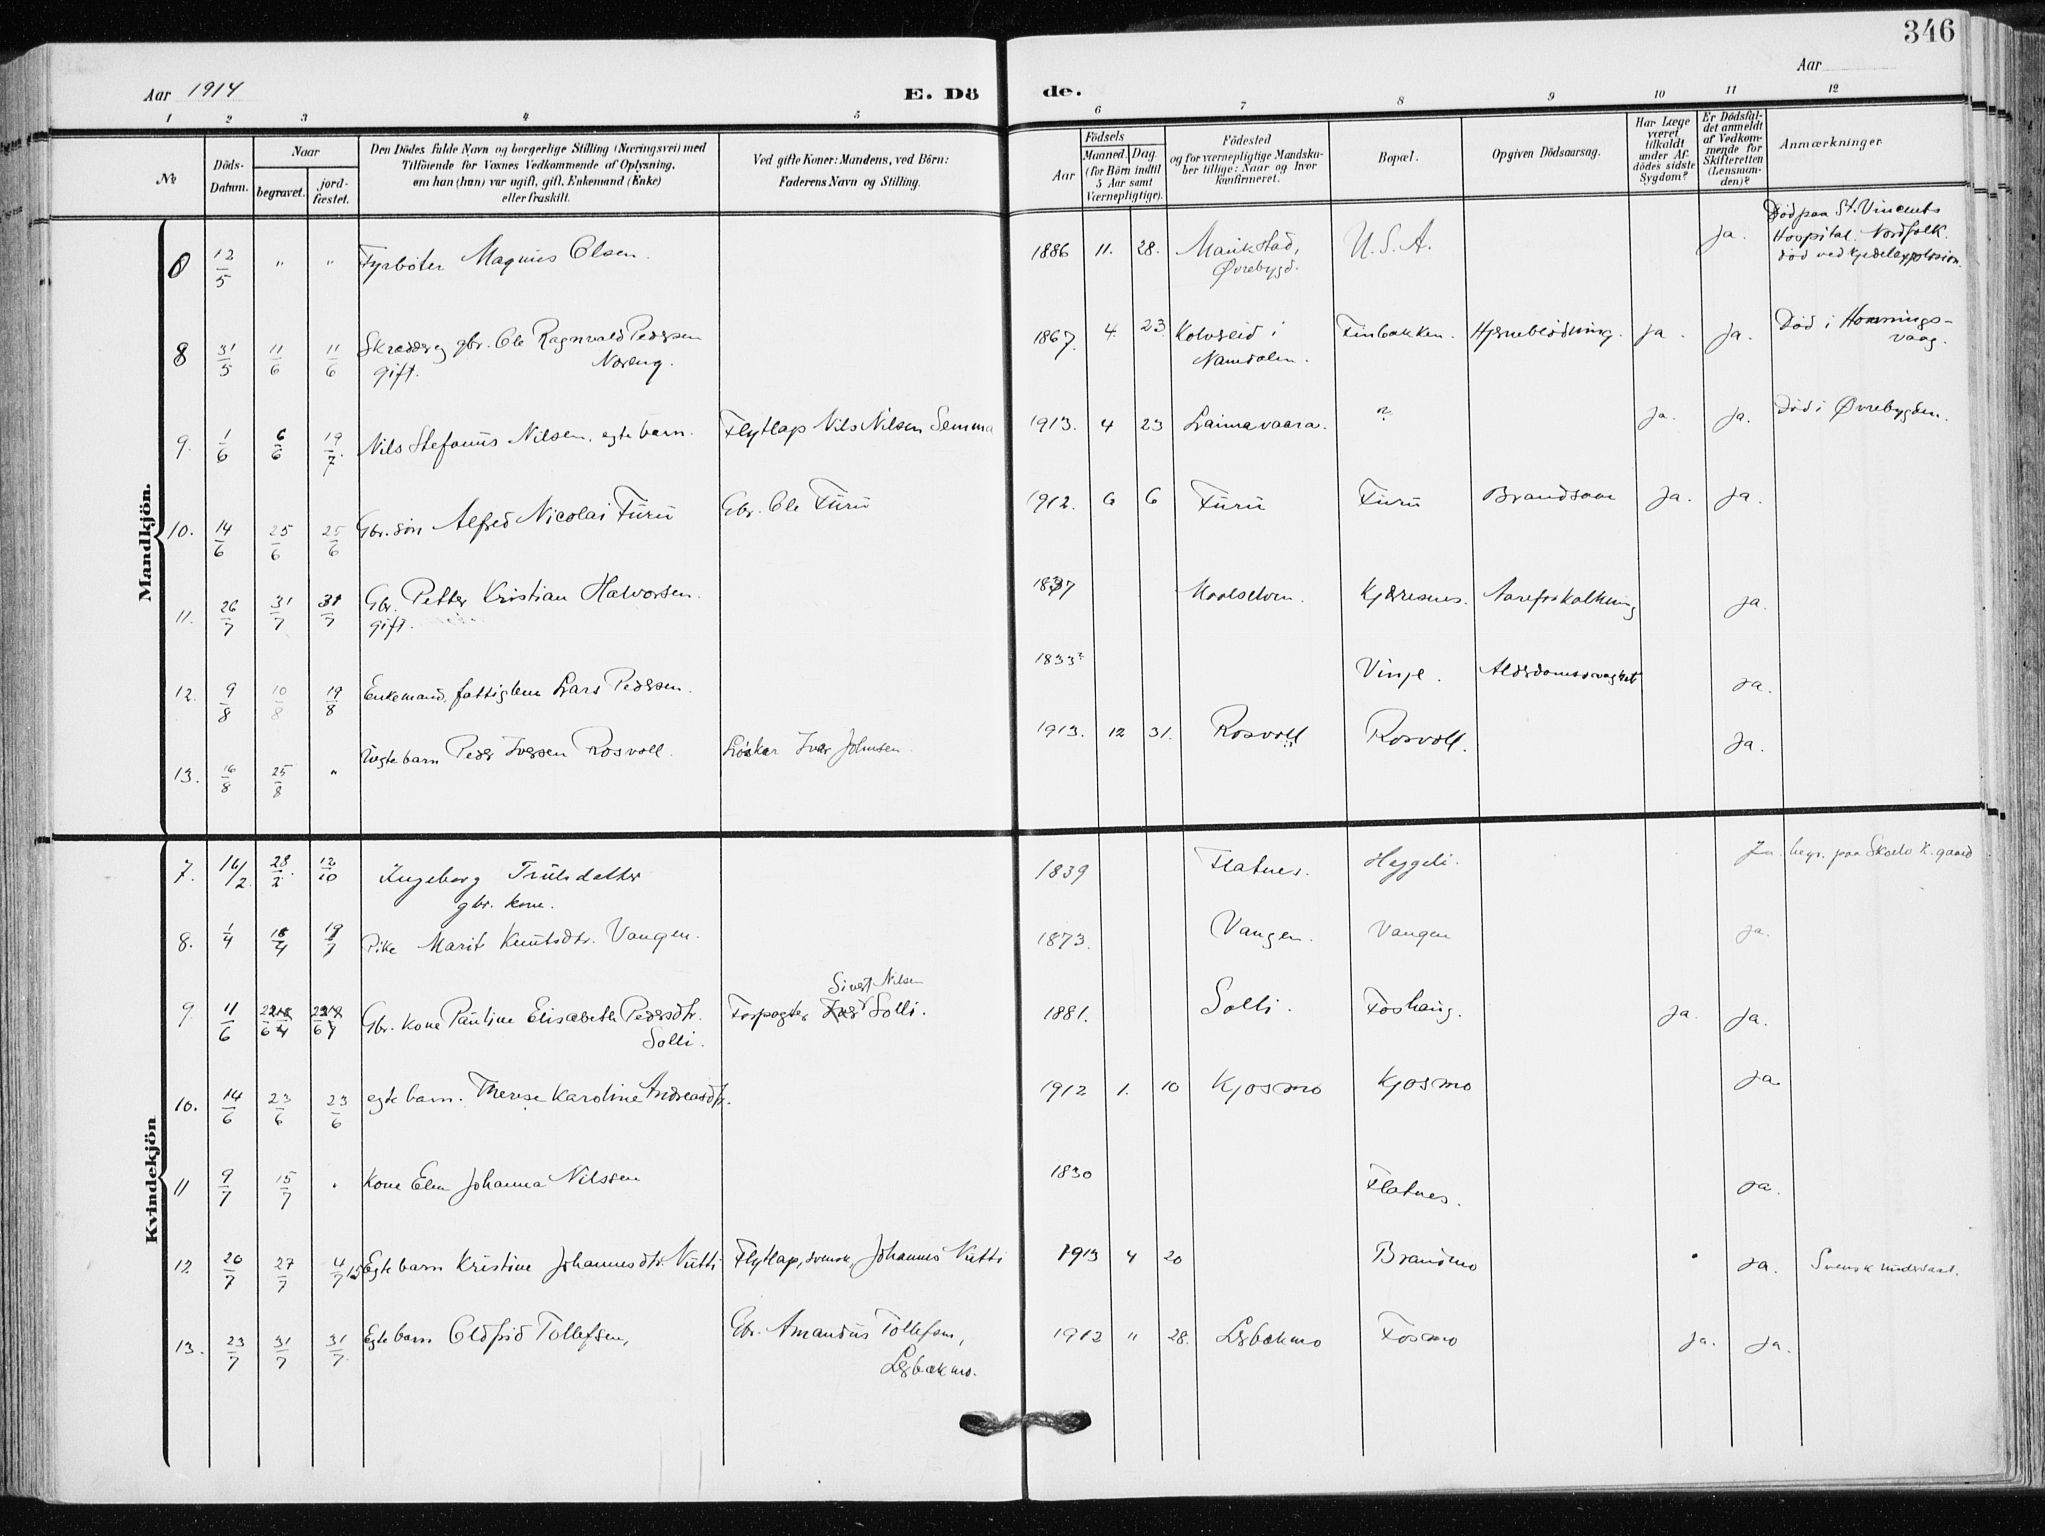 346
Aar 1914
E. Dö
de.
Aar
1 2 3 4 5 6 7 8 9 10 11 12
№
Döds-
Datum.
Naar
begravet.
jord-
fæstet.
Den Dödes fulde Navn og borgerlige Stilling (Næringsvei) med
Tilföiende for Voxnes Vedkommende af Oplysning,
om han (hun) var ugift, gift, Enkemand (Enke)
eller fraskilt.
Ved gifte Koner: Mandens, ved Börn:
Faderens Navn og Stilling.
Födsels
Aar
Maaned. Dag.
(for Börn indtil
5 Aar samt
Værnepligtige).
Födested
og for værnepligtige Mandska-
ber tillige: Naar og hvor
konfirmeret.
Bopæl.
Opgiven Dödsaarsag.
Har Læge
været
tilkaldt
under Af-
dödes sidste
Sygdom?
Er Dödsfal-
det anmeldt
af Vedkom-
mende for
Skifteretten
(Lensman-
den)?
Anmærkninger
Mandkjön.
0 12/5 " " Fyrböter Magnus Olsen. 1886 11. 28. Øvrebygd. U.S.A. Ja. Död paa St. Vincents
Hospital. Nordfolk.
död ved kjedelexplosion.
8 31/5 11/6 11/6 gbr. Ole Ragnvald Pedersen
gift. Noreng. 1867. 4. 23 Kolvereid i
Namdalen. Finbakken. Hjerneblödning. Ja. Ja. Död i Honnings-
vaag.
9. 1/6 6/6 19/7. Nils Stefanus Nilsen, egte barn. Flytlap Nils Nilsen Semma 1913. 4 23 Lainavaara. ? Ja. Ja. död i Øvrebygden.
10. 14/6 25/6 25/6 Gbr. sön Alfred Nicolai Furu Gbr. Ole Furu 1912. 6 6 Furu Furu Brandsaar Ja. Ja.
11. 26/7 31/7 31/7 Gbr. Petter Kristian Halvorsen.
gift. 1837 Maalselven. Kjærresnes. Aareforkalkning Ja.
12. 9/8 10/8 19/8 Enkemand, fattiglem Lars Pedersen. 1833? Vinje. Alderdomssvaghet Ja.
13. 16/8 25/8 " Uegte barn Peder Iversen Rosvoll. Löskar Ivar Johnsen. 1913. 12 31. Rosvoll Rosvoll. Ja.
Kvindekjön
7. 16/2. 28/2. 12/10 Ingeborg Trulsdatter
gbr. kone. 1839 Flatnes. Heggeli. Ja. begr. paa K. gaard
8. 1/4 18/4 19/7 Pike Marit Knutsdtr. Vangen. 1873. Vangen. Vangen Ja.
Sivert Nilsen
9 11/6 Gbr. kone Pauline Elisabeth Pedersdtr.
Solli. Forpagter Solli. 1881. Solli. Foshaug. Ja. Ja.
10. 14/6 23/6 23/6 egte barn. Therese Karoline Andreasdtr. 1912 1. 10 Kjosmo Kjosmo Ja.
11 9/7 15/7 . Kone Elen Johanna Nilssen 1830 Flatnes. Ja.
12 20/7 27/7 Egte barn Kristine Johannesdtr. Nutti Flytlap, svensk, Johannes Nutti 1913 4 20 Brandmo Ja. Svensk undersaat.
13. 23/7 31/7 31/7. Egte barn Oldfrid Tollefsen, Gbr. Amandus Tollefsen,
Leibækmo. 1912 " 28. Leibækmo Fosmo Ja. Ja.